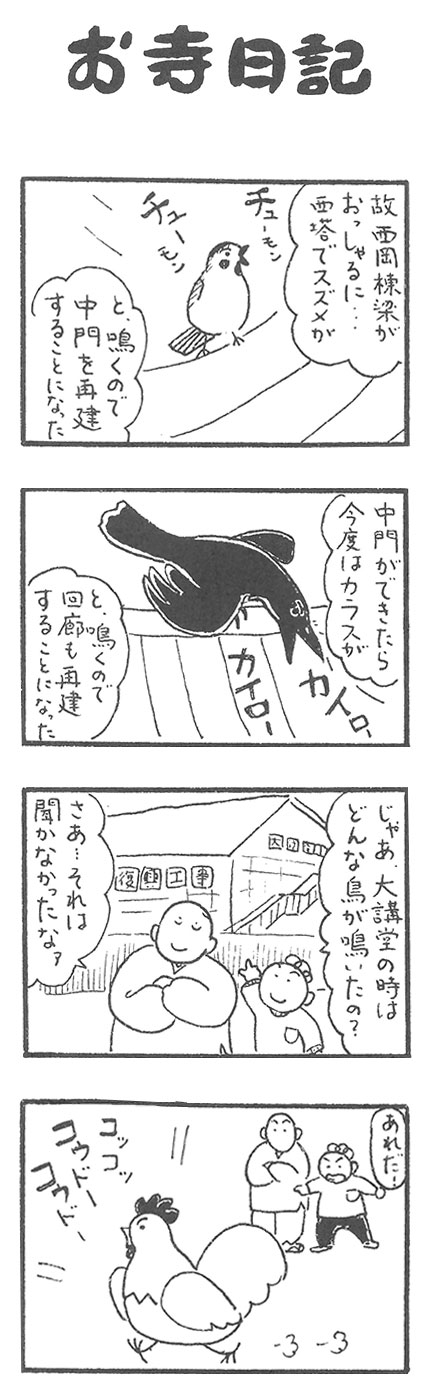 お寺日記
故西岡棟梁が
おっしゃるに・・・
西塔でスズメが
チューモン
チューモン
と、鳴くので
中門を再建
することになった
中門ができたら
今度はカラスが
カイロー
カイロー
と、鳴くので
回廊も再建
することになった
じゃあ、大講堂の時は
どんな鳥が鳴いたの？
復興工事
さあ…それは
聞かなかったなァ
あれだー！
コッコッ
コウドー
コウドー